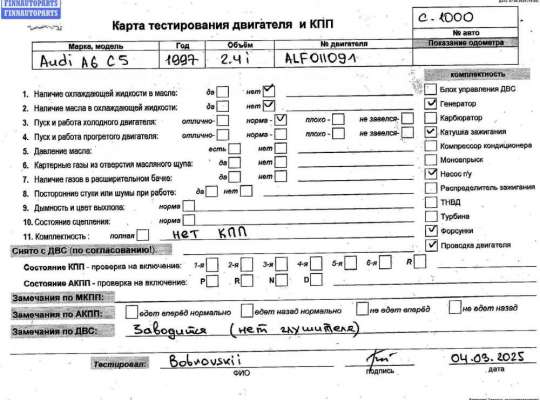 FINNAUTOPARTS
FINNAUTOPARTS
Карта тестирования двигателя и КПП
C-1000
№ авто
Марка, модель Год Объём № двигателя Показание одометра
Audi A6 C5 1997 2.4i ALF011091
комплектность
1. Наличие охлаждающей жидкости в масле: да нет
2. Наличие масла в охлаждающей жидкости: да нет
3. Пуск и работа холодного двигателя: отлично- норма- плохо- не завелся-
4. Пуск и работа прогретого двигателя: отлично- норма- плохо- не завелся-
5. Давление масла: есть нет
6. Картерные газы из отверстия масляного щупа: да нет
7. Наличие газов в расширительном бачке: да нет
8. Посторонние стуки или шумы при работе: да нет
9. Дымность и цвет выхлопа: норма
10. Состояние сцепления: норма
11. Комплектность: полная нет КПП
Блок управления ДВС
Генератор
Карбюратор
Катушка зажигания
Компрессор кондиционера
Моновпрыск
Насос г/у
Распределитель зажигания
ТНВД
Турбина
Форсунки
Проводка двигателя
Снято с ДВС (по согласованию!).
Состояние КПП - проверка на включение: 1-я 2-я 3-я 4-я 5-я 6-я R
Состояние АКПП - проверка на включение: P R N D
Замечания по МКПП:
Замечания по АКПП: едет вперёд нормально едет назад нормально не едет вперёд не едет назад
Замечания по ДВС: Заводится (нет глушителя)
Тестировал: Bobrovskii 04.03.2025
ФИО подпись дата